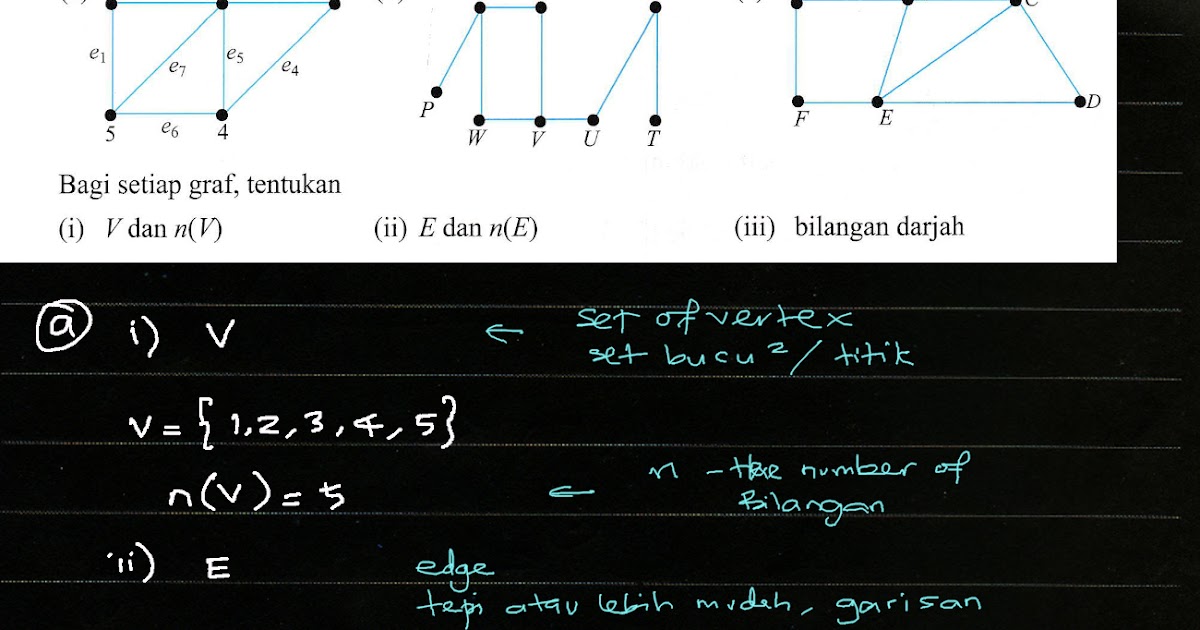 e1 e7 e5 e4
P
5 e6 4
W V U T
F E
C
D
Bagi setiap graf, tentukan
(i) V dan n(V) (ii) E dan n(E) (iii) bilangan darjah
a i) V ← set of vertex
set bucu 2 / titik
V = {1, 2, 3, 4, 5}
n(V) = 5 ← n - the number of
Bilangan
ii) E edge
tepi atau lebih mudah, garisan